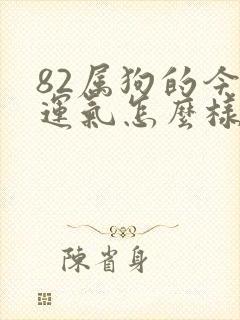 82属狗的今
運氣怎麽樣
陳省身